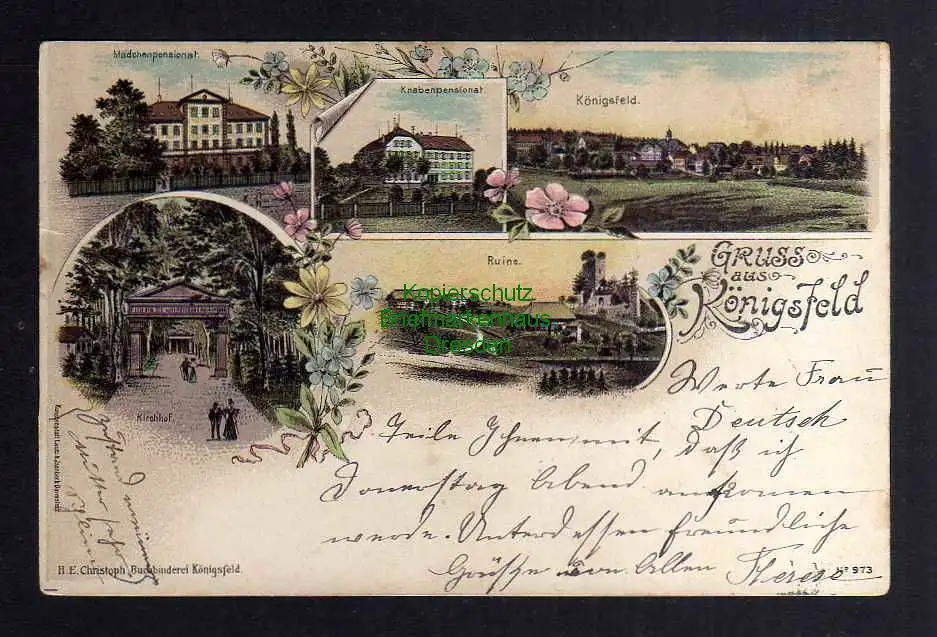 Mädchenpensionat.
Knabenpensionat.
Königsfeld.
Ruine.
Gruss
aus
Königsfeld
Kopierschutz
Briefmarkenhaus
Dresden
Kirchhof.
Werte Frau
Deutsch
Teile Ihnen mit, daß ich
Donerstag Abend ankomen
werde. Unterdessen freundliche
Grüße von Allen Thérèse
H. E. Christoph, Buchbinderei Königsfeld.
Nº 973